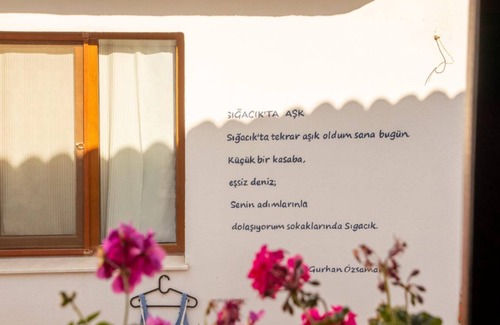 SIĞACIK'TA AŞK
Sığacık'ta tekrar aşık oldum sana bugün.
Küçük bir kasaba,
eşsiz deniz;
Senin adımlarınla
dolaşıyorum sokaklarında Sıgacık.
Gurhan